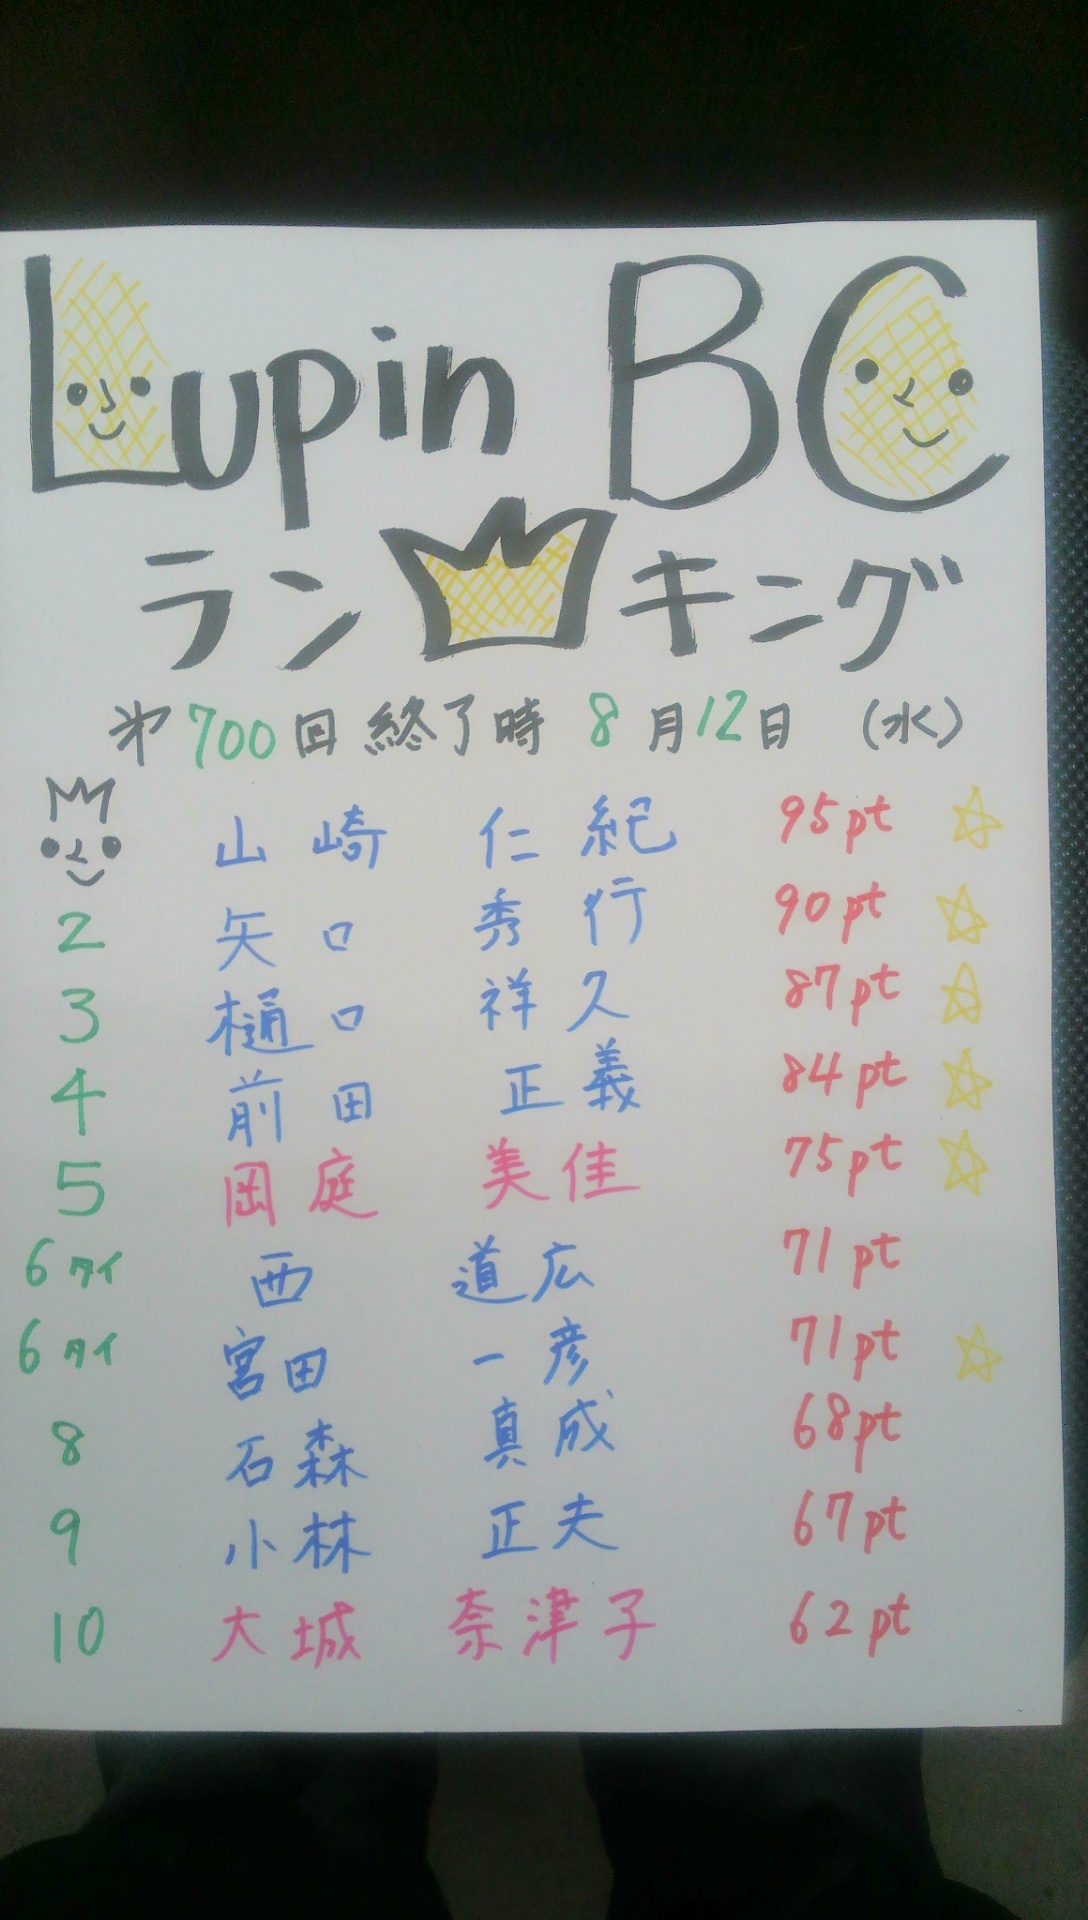 Lupin BC
ランキング
第700回終了時 8月12日 (水)
山崎 仁紀 95pt ☆
2 矢口 秀行 90pt ☆
3 樋口 祥久 87pt ☆
4 前田 正義 84pt ☆
5 岡庭 美佳 75pt ☆
6タイ 西 道広 71pt
6タイ 宮田 一彦 71pt ☆
8 石森 真成 68pt
9 小林 正夫 67pt
10 大城 奈津子 62pt